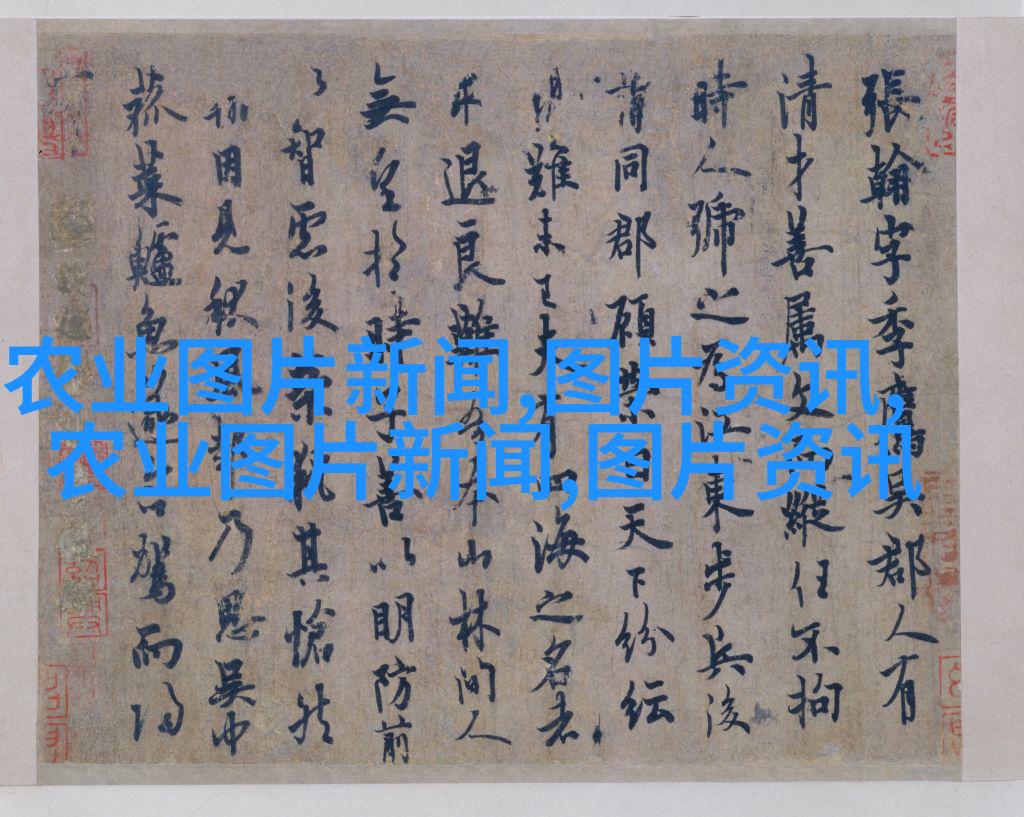 張翰字季鷹吳郡人有
清才善屬文而縱任不拘
時人號之為江東步兵後
謂同郡顧榮曰天下紛紜
難未已夫有四海之名者
求退良難吾本山林間人
無望於時子善以明防前
以智慮後榮執其愴然
翰因見秋風起乃思吳中
菰菜鱸魚遂命駕而歸
农业图片新闻,图片资讯,
农业图片新闻,图片资讯